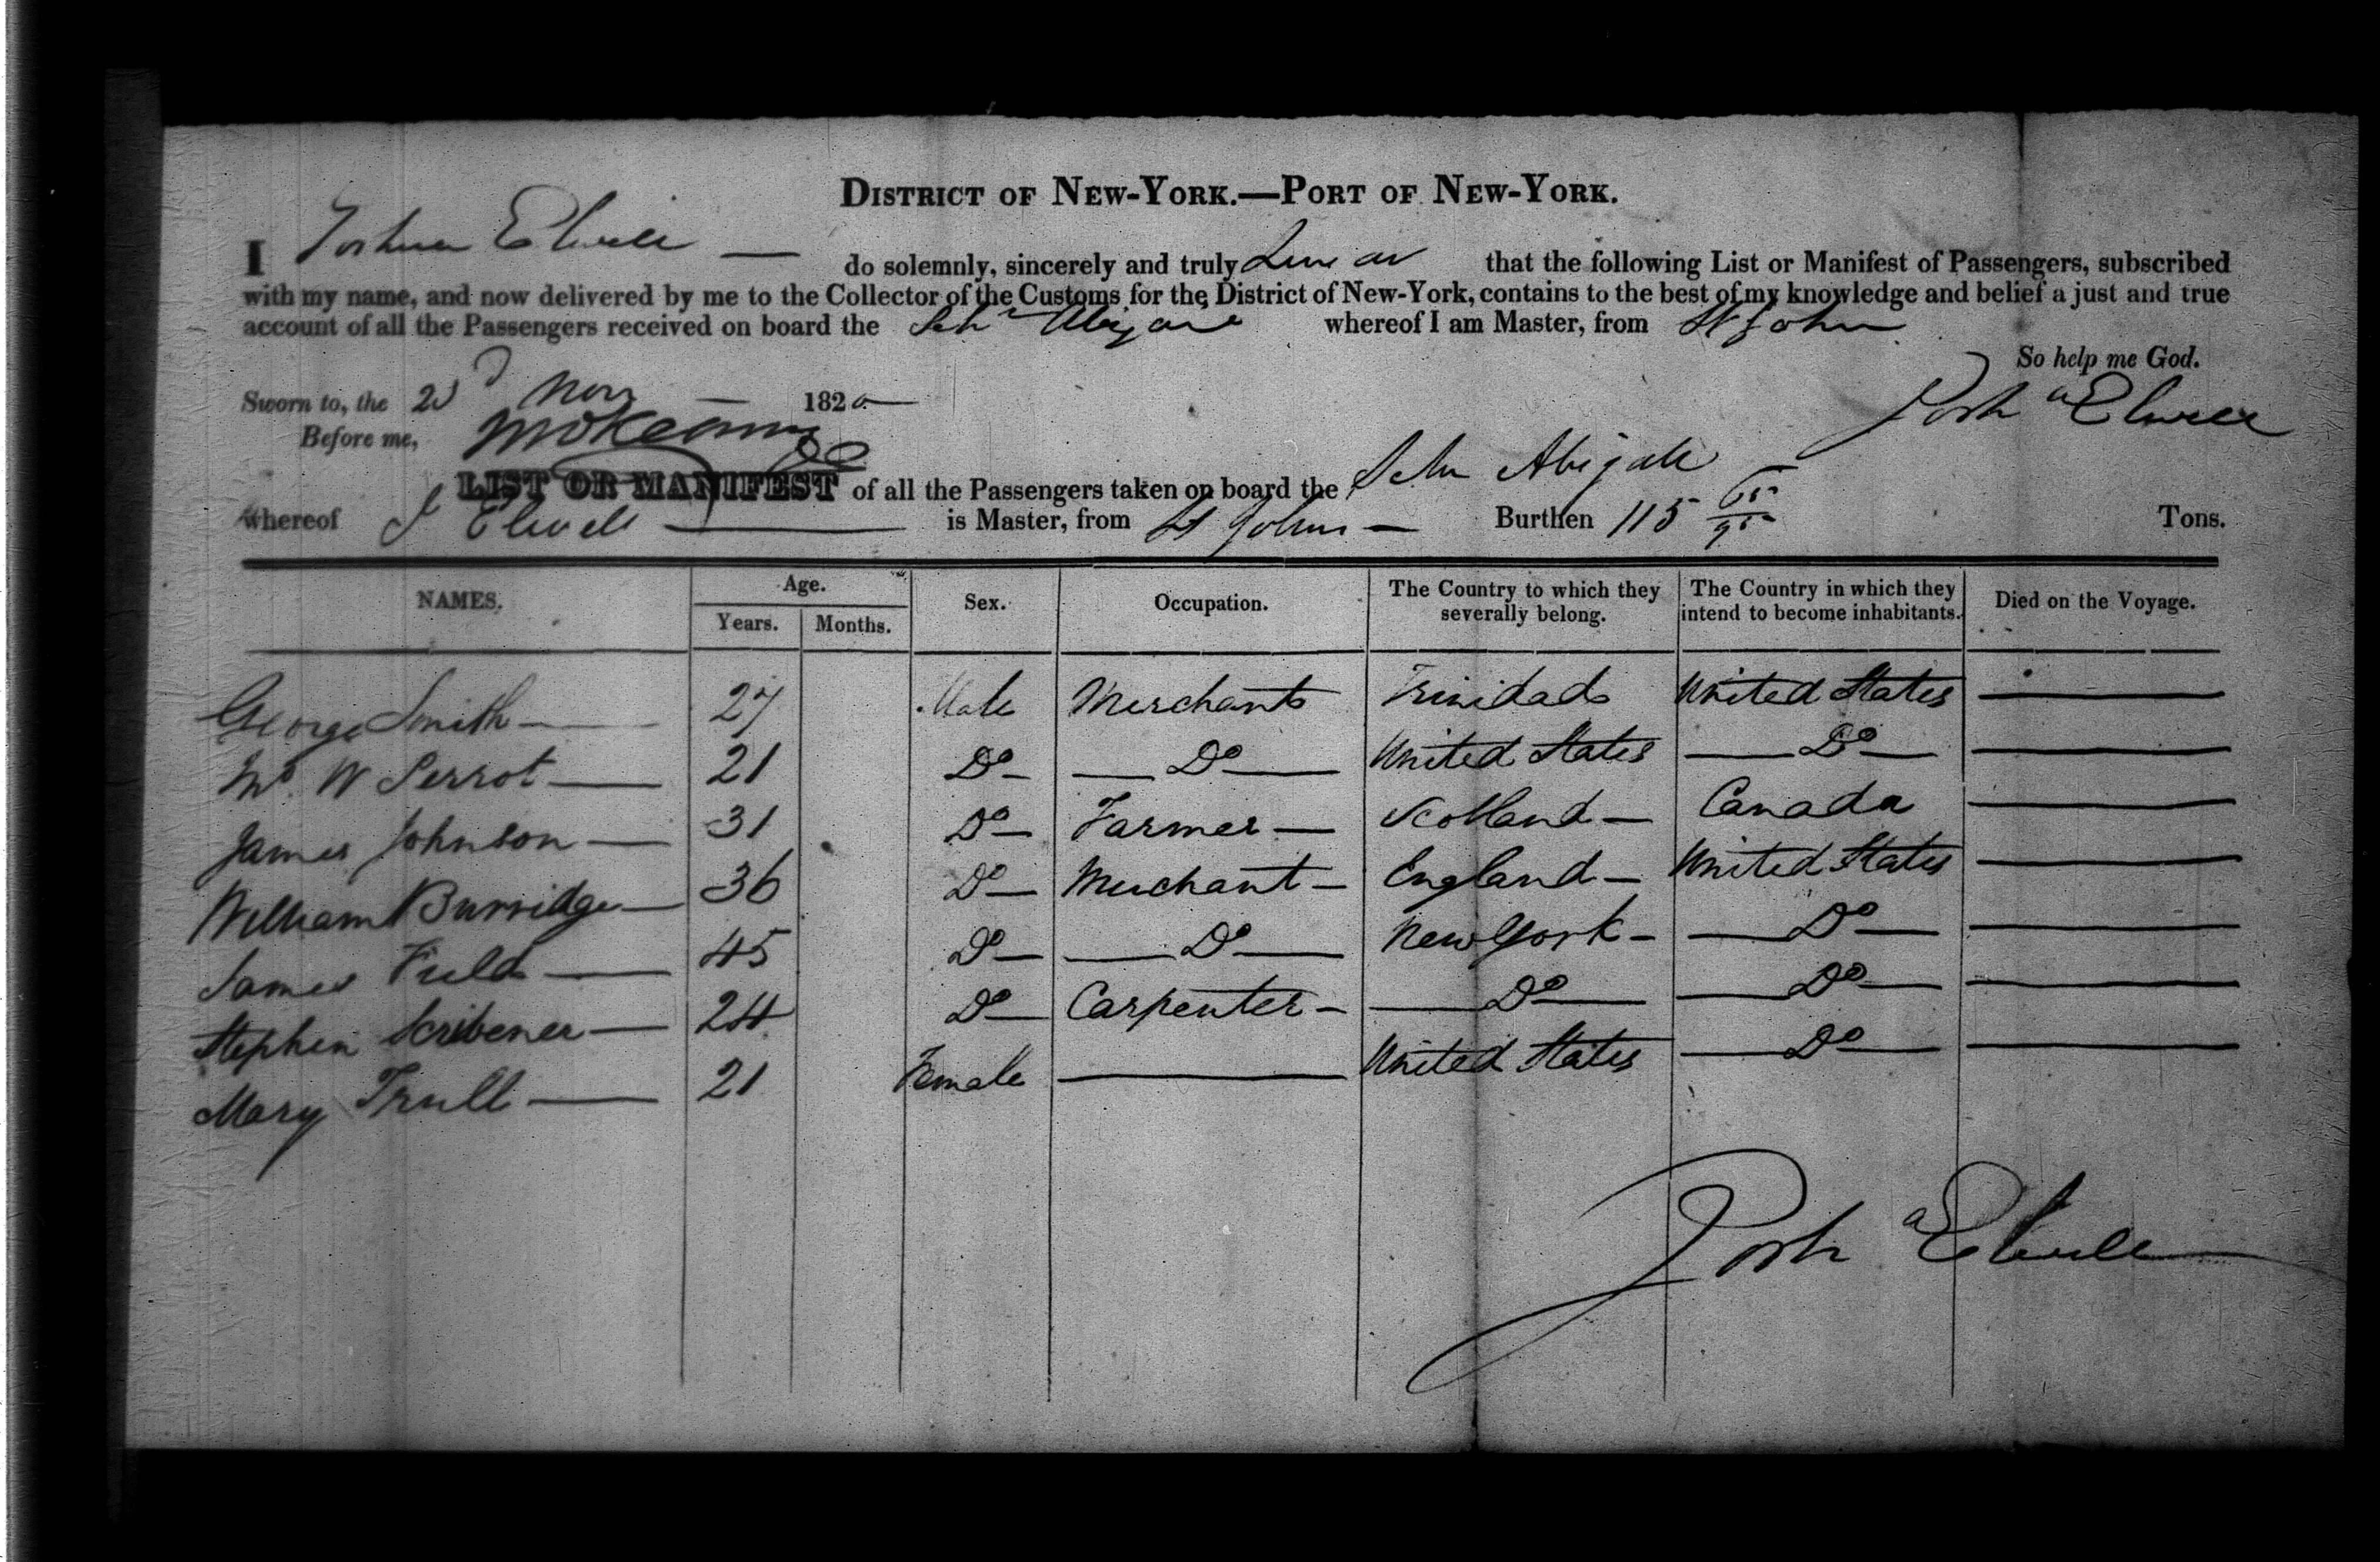 DISTRICT OF NEW-YORK.—PORT OF NEW-YORK.
I Joshua Elwell — do solemnly, sincerely and truly swear that the following List or Manifest of Passengers, subscribed
with my name, and now delivered by me to the Collector of the Customs for the District of New-York, contains to the best of my knowledge and belief a just and true
account of all the Passengers received on board the Schr whereof I am Master, from St John
So help me God.
Sworn to, the 2d Nov — 1820 —
Josha Elwell
Before me,
LIST OR MANIFEST of all the Passengers taken on board the Schr Abigale
whereof J Elwell — is Master, from St Johns — Burthen 115 65/95 Tons.
NAMES. Age. Sex. Occupation. The Country to which they severally belong. The Country in which they intend to become inhabitants. Died on the Voyage.
Years. Months.
George Smith — 27 Male Merchant Trinidad United States —
W Perrot — 21 Do — — Do — United States — Do — —
James Johnson — 31 Do — Farmer — Scotland — Canada —
William Burridge — 36 Do — Merchant — England — United States —
James Field — 45 Do — — Do — New York — — Do — —
Stephen Scribener — 24 Do — Carpenter — — Do — — Do — —
Mary Trull — 21 Female — United States — Do — —
Josha Elwell